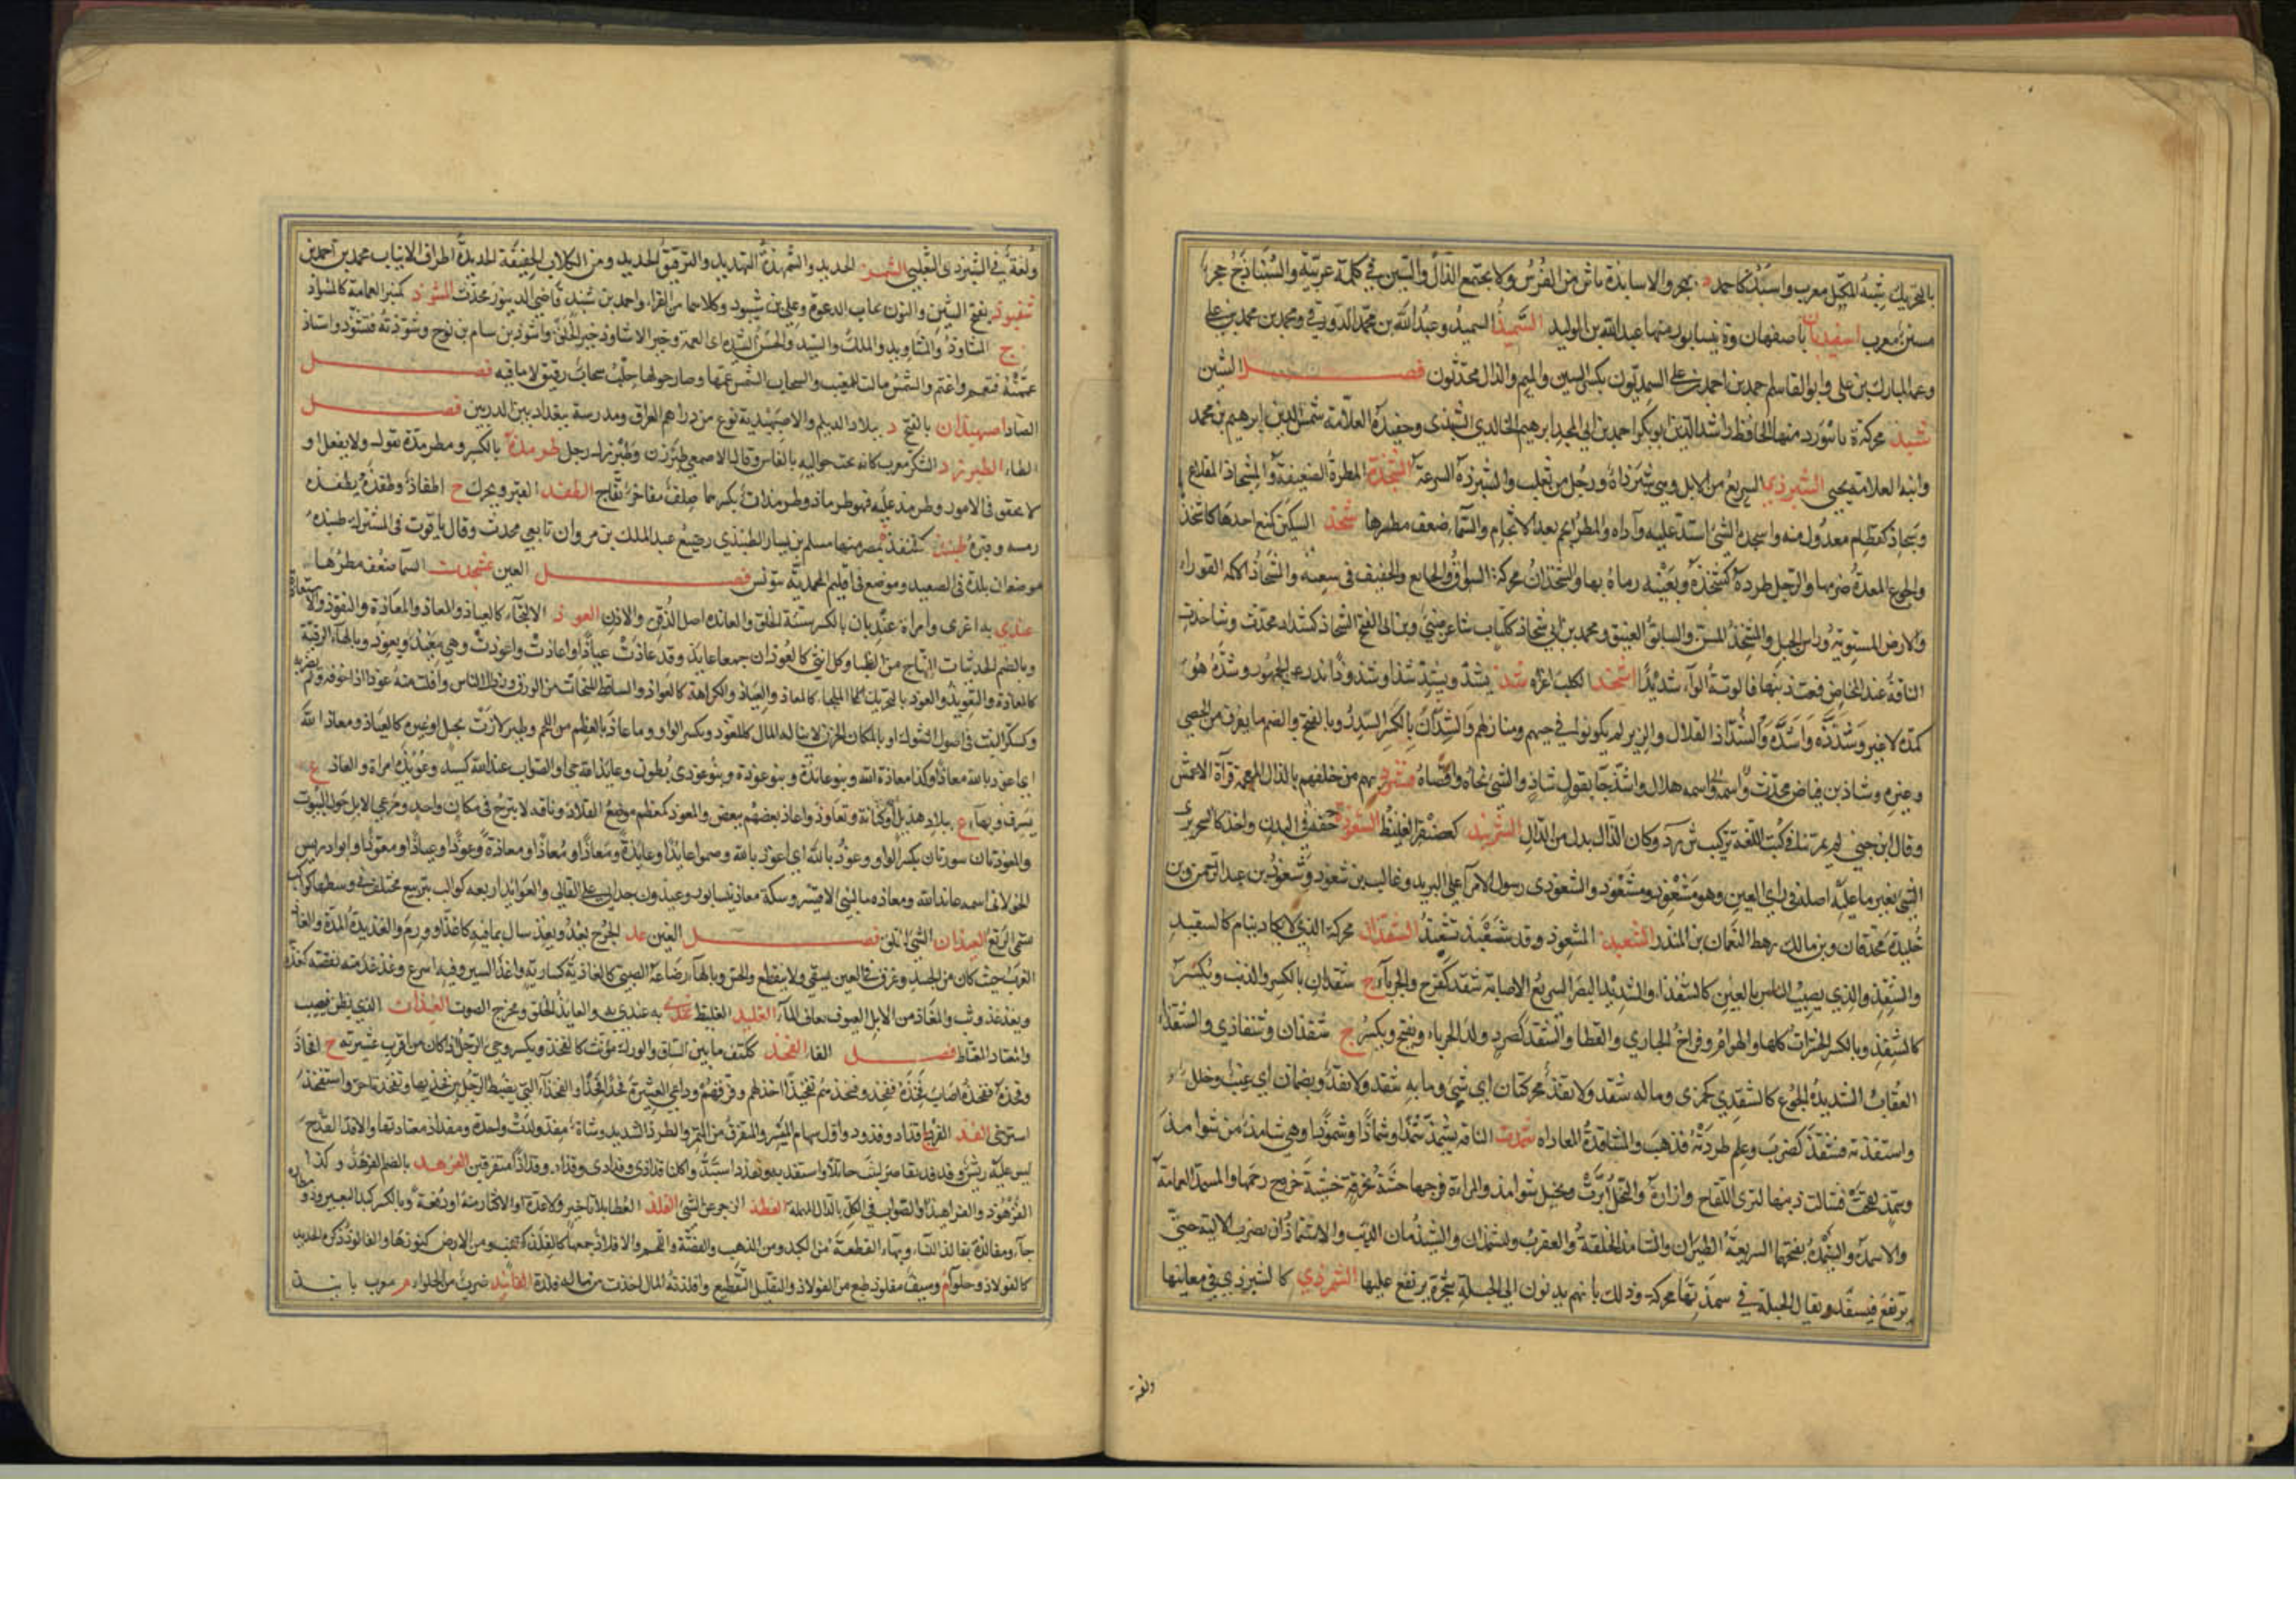 بالتحريك شبه المكتل معرب واسبذ كاحمد د بهجر والاسابذة ناس من الفرس ولا يجتمع الذال والسين في كلمة عربية والسنباذج حجر
مسن معرب اسفيذبان ة باصفهان وة بنيسابور منها عبد الله بن الوليد السميذ السميد وعبد الله بن محمد الدورقي ومحمد بن محمد بن علي
وعبد المبارك بن علي وابو القاسم احمد بن احمد بن علي السمذيون بكسر السين والميم والذال محدثون فصل الشين
شبذ محركة ة بابيورد منها الحافظ راشد الدين ابو بكر احمد بن ابي المجد ابرهيم الخالدي الشبذي وحفيده العلامة شمس الدين ابرهيم بن محمد
وابنه العلامة يحيى الشبرذي السريع من الابل وهي شبرذاة ورجل من تغلب والشبرذة السرعة الشجذة المطرة الضعيفة والمشجاذ المقلاع
وشجاذ كقطام معدول منه واشجذه الشئ اشتد عليه وآذاه والمطر انجم بعد الاثجام والسماء ضعف مطرها شحذ السكين كمنع احدها كاشحذ
والجوع المعدة ضرمها والرجل طرده كشحذه وبعينه رماه بها والشحذان محركة السواق والجائع والخفيف في سعيه والشحاذ الاكمة القوراء
والارض المستوية وراس الجبل والمشحذ المسن والسائق العنيف ومحمد بن ابي شحاذ ككتاب شاعر ضبي وبالفتح الشحاذ كشداد محدث وشاحذت
الناقة عند المخاض فعت ذنبها فالوته الواء شديدا اشخذ الكلب اغراه شذ يشذ ويشذ شذا وشذوذا ندر عن الجمهور وشذه هو
كمده لا غير وشذذه واشذه والشذاذ القلال والذين لم يكونوا في حيهم ومنازلهم والشذان بالكسر السدر وبالفتح والضم ما تفرق من الحصى
وغيره وشاذ بن فياض محدث واسمه هلال واشذ جاء بقول شاذ والشئ نحاه واقصاه فشرذ بهم من خلفهم بالذال المعجمة قرآه الاعمش
وقال ابن جني لم يمر بنا في كتب اللغة تركيب ش ر ذ وكان الذال بدل من الدال الشرنبذ كغضنفر الغليظ الشعوذة خفة في اليدين واخذ كالسحر يرى
الشئ بغير ما عليه اصله في راي العين وهو مشعوذ ومشعوذ والشعوذي رسول الامرآء على البريد وغالب بن شعوذ وشعوذ بن عبد الرحمن وبن
خليدة محدثان وبن مالك رهط النعمان بن المنذر الشعبيذ المشعوذ وقد شعبذ تشعبذ الشقذان محركة الذي لا يكاد ينام كالشقيذ
والشقذ والذي يصيب الناس بالعين كالشقذا والشديد البصر السريع الاصابة شقذ كفرح والحرباء ج شقذان بالكسر والذئب وبكسر
كالشقذ وبالكسر الحشرات كلها والهوام وفراخ الحباري والقطا والشقذ كصرد ولد الحرباء ويفتح ويكسر ج شقذان وشقاذي والشقذاء
العقاب الشديدة الجوع كالشقذى كجمزى وما له شقذ ولا نقذ محركتان اي شئ وما به شقذ ولا نقذ ويضمان اي عيب وخلل
واشقذته فشقذ كضرب وعلم طردته فذهب والمشاقذة المعاداة شمذت الناقة تشمذ شمذا وشماذا وشموذا وهي شامذ من شوامذ
وشمذ لقحت فشالت ذنبها لترى اللقاح وازاره والنخل ابرت ونخيل شوامذ والمراة فرجها حشته بخرقة خشية خروج رحمها والمشمذ العمامة
يرتفع فيسفد ويقال الجبلة في شمذتها محركة وذلك بانهم يدنون الى الجبلة شجرة يرتفع عليها الشمرذي كالشبرذي في معانيها
ولغة
ولغة في الشبرذى التغلبي الشهذ الحديد والشهذة التهديد والترقيق الحديد ومن الكلاب الخفيفة الحديدة اطراف الانياب محمد بن احمد بن
شنبوذ بفتح الشين والنون مجاب الدعوة وعلي بن شنبوذ وكلاهما من القراء واحمد بن شنبذ قاضي الدينور محدث المشوذ كمنبر العمامة كالمشواذ
ج المشاوذ والمشاويذ والملك والسيد والحسن الشيذه اى العمة وخير الاشاوذ خير الخلق واشوذ بن سام بن نوح وشوذته فتشوذ واشتاذ
عممته فتعمم واعتم والشمس مالت للمغيب والسحاب الشمس عمها وصار حولها خلب سحاب رقيق لا ماء فيه فصل
الصاد اصبهبذان بالفتح د ببلاد الديلم والاصبهبذية نوع من دراهم العراق ومدرسة ببغداد بين الدربين فصل
الطاء الطبرزذ السكر معرب كانه نحت حواليه بالفاس وقال الاصمعي طبرزن وطبرزل رجل طرمذة بالكسر ومطرمذ يقول ولا يفعل او
لا يحقق في الامور وطرمذ عليه فهو طرماذ وطرمذان بكسرهما صلف مفاخر نفاج الطقذ القبر ويحرك ج اطقاذ وطقذه يطقذه
رمسه وقبره طبنذ كقنفذ ة بمصر منها مسلم بن يسار الطنبذي رضيع عبد الملك بن مروان تابعي محدث وقال ياقوت في المشترك طنبذه
موضعان بلدة في الصعيد وموضع في اقليم المحمدية بتونس فصل العين عجذت السماء ضعف مطرها
عنذي به اغرى وامراة عنذيان بالكسر سيئة الخلق والعانذة اصل الذقن والاذن العوذ الالتجاء كالعياذ والمعاذ والمعاذة والتعوذ والاستعاذة
وبالضم الحديثات النتاج من الظباء وكل انثى كالعوذان جمعا عايذ وقد عاذت عياذا واعاذت واعوذت وهي معيذ ومعوذ وبالهاء الرقية
كالمعاذة والتعويذ والعوذ بالتحريك الملجا كالمعاذ والعياذ والكراهة كالعواذ والساقط المتحات من الورق ورذال الناس وافلت منه عوذا اذا خوفه ولم يضربه
وكسكر النبت في اصول الشوك او بالمكان الحزن لا يناله المال كالمعوذ وبكسر الواو وما عاذ بالعظم من اللحم وطير لاذت بجبل او غيره كالعياذ ومعاذ الله
اي اعوذ بالله معاذا وكذا معاذة الله وبنو عائذة وبنو عوذة وبنو عوذى بطون وعايذ الله حي او الصواب عيذ الله كسيد وعويذة امراة والعاذ ع
بسرف وبهاء ع ببلاد هذيل او كنانة وتعاوذوا عاذ بعضهم ببعض والمعوذ كمعظم موضع القلادة وناقة لا تبرح في مكان واحد ومرعى الابل حول البيوت
والمعوذتان سورتان بكسر الواو وعوذ بالله اي اعوذ بالله وسموا عايذا وعايذة ومعاذا ومعاذة وعوذا وعياذا ومعوذا وابو ادريس
الخولاني اسمه عايذ الله ومعاذه ماءة لبني الاقيشر وسكة معاذ بنيسابور وعيذون جد ابي علي القالي والعوائذ اربعة كواكب بتربيع مختلف في وسطها كوكب
يسمى الربع العيذان السيئ الخلق فصل الغين غذ الجرح يغذ ويغذ سال بما فيه كاغذ او ورم والغذيذة المدة والغاذ
الغرب حيث كان من الجسد وعرق في العين يسقي ولا ينقطع والحس وبالهاء رماعة الصبي كالغاذية كسارية واغذ السير وفيه اسرع وغذغذ منه نقصه كغذه
وتغذغذ وثب والمغاذ من الابل العيوف يعاف الماء الغليذ الغليظ غنذي به عنذي به والغانذ الحلق ومخرج الصوت الغيذان الذي يظن فيصيب
واغتاذ اغتاظ فصل الفاء الفخذ ككتف ما بين الساق والورك مونث كالفخذ ويكسر وحي الرجل اذا كان من اقرب عشيرته ج افخاذ
وفخذه كمنعه اصاب فخذه ففخذ وفخذ بينهم تفخيذا اخذلهم وفرقهم وداعي العشيرة فخذا فخذا والفخذاء التي تضبط الرجل بين فخذيها وتفخذ تاخر واستفخذ
استرخى الفذ الفرد ج افذاذ وفذوذ واول سهام الميسر والمتفرق من التمر والطرد الشديد وشاة مفذ ولدت واحدة ومفذاذ معتادتها والافذ القدح
كالفولاذ وحلوآء م وسيف مفلوذ طبع من الفولاذ والتفليذ التقطيع وافتلذته المال اخذت من ماله فلذة الفانيذ ضرب من الحلواء م معرب بانيذ